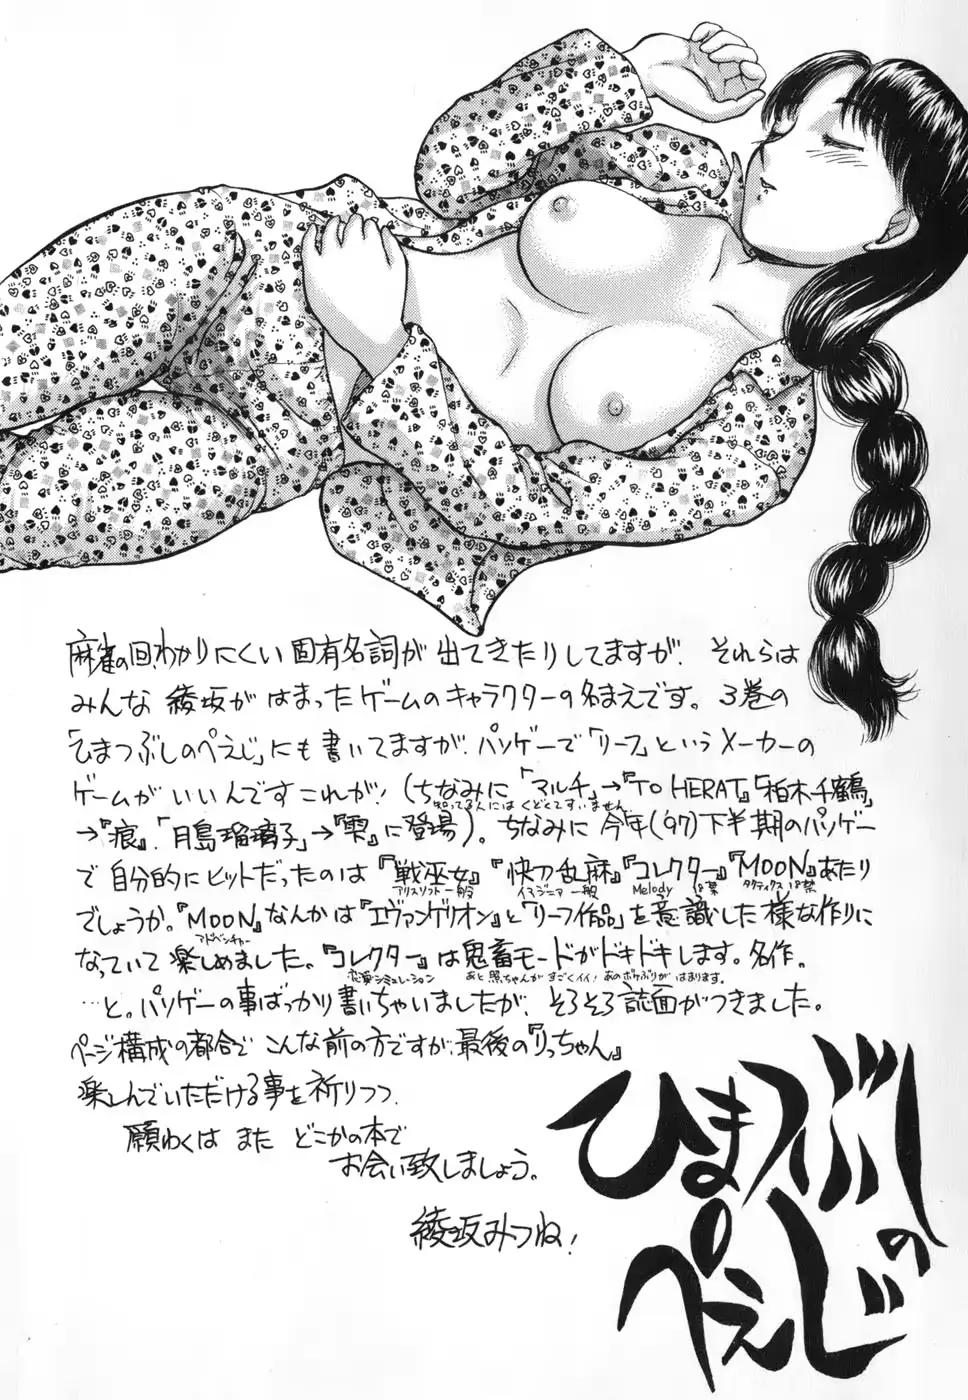 麻雀の回わかりにくい固有名詞が出てきたりしてますが、それらは
みんな綾坂がはまったゲームのキャラクターの名まえです。3巻の
「ひまつぶしのぺえじ」にも書いてますが、パソゲーで「リーフ」というメーカーの
ゲームがいいんですこれが！（ちなみに「マルチ」→『TO HERAT』「柏木千鶴」
知ってる人にはくどくてすいません
→『痕』「月島瑠璃子」→『雫』に登場）。ちなみに今年('97)下半期のパソゲー
で自分的にヒットだったのは『戦巫女』『快刀乱麻』『コレクター』『MOON』あたり
アリスソフト 一般 イマジニア 一般 Melody 18禁 タクティクス 18禁
でしょうか。『MOON』なんかは『エヴァンゲリオン』と「リーフ作品」を意識した様な作りに
アドベンチャー
なっていて楽しめました。『コレクター』は鬼畜モードがドキドキします。名作。
恋愛シミュレーション あと照ちゃんがすごくイイ！あのボケぶりがはまります。
…と。パソゲーの事ばっかり書いちゃいましたが、そろそろ誌面がつきました。
ページ構成の都合でこんな前の方ですが、最後の『りっちゃん』
楽しんでいただける事を祈りつつ
願わくはまたどこかの本で
お会い致しましょう。
綾坂みつね！
ひまつぶしの
ぺえじ